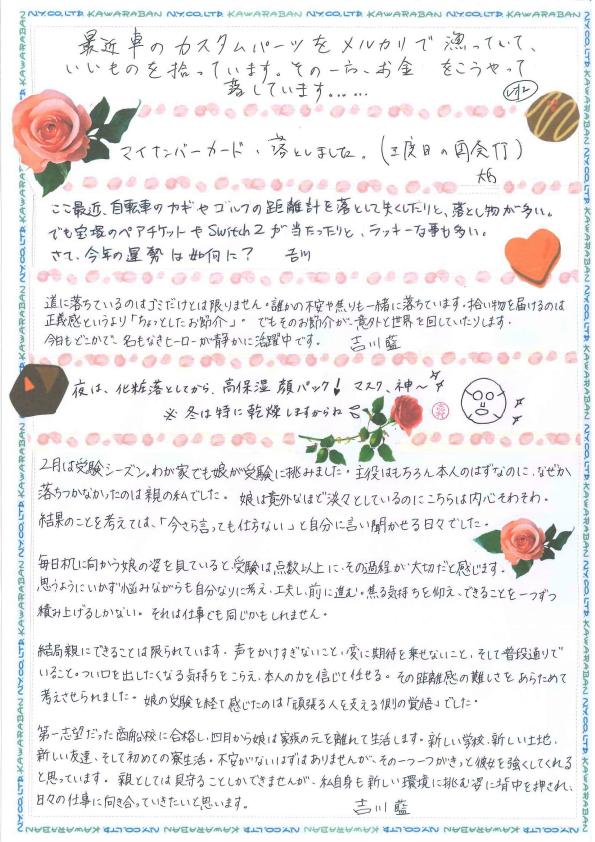 最近車のカスタムパーツをメルカリで漁っていて、
いいものを拾っています。その一方、お金をこうやって
落しています……
マイナンバーカード、落としました。(2度目の再発行)
ここ最近、自転車のカギやゴルフの距離計を落として失くしたりと、落とし物が多い。
でも宝塚のペアチケットやSwitch2が当たったりと、ラッキーな事も多い。
さて、今年の運勢は如何に? 吉川
道に落ちているのはゴミだけとは限りません。誰かの不安や焦りも一緒に落ちています。拾い物を届けるのは
正義感というより「ちょっとしたお節介」。でもそのお節介が、意外と世界を回していたりします。
今日もどこかで、名もなきヒーローが静かに活躍中です。 吉川藍
夜は、化粧落としてから、高保湿 顔パック! マスク、神〜
※冬は特に乾燥しますからね
2月は受験シーズン。わが家でも娘が受験に挑みました。主役はもちろん本人のはずなのに、なぜか
落ちつかなかったのは親の私でした。娘は意外なほど淡々としているのにこちらは内心そわそわ。
結果のことを考えては、「今さら言っても仕方ない」と自分に言い聞かせる日々でした。
毎日机に向かう娘の姿を見ていると、受験は点数以上に、その過程が大切だと感じます。
思うようにいかず悩みながらも自分なりに考え、工夫し、前に進む。焦る気持ちを抑え、できることを一つずつ
積み上げるしかない。それは仕事でも同じかもしれません。
結局親にできることは限られています。声をかけすぎないこと、変に期待を乗せないこと、そして普段通りで
いること。つい口を出したくなる気持ちをこらえ、本人の力を信じて任せる。その距離感の難しさをあらためて
考えさせられました。娘の受験を経て感じたのは「頑張る人を支える側の覚悟」でした。
第一志望だった商船校に合格し、四月から娘は家族の元を離れて生活します。新しい学校、新しい土地、
新しい友達、そして初めての寮生活。不安がないはずはありませんが、その一つ一つがきっと彼女を強くしてくれる
と思っています。親としては見守ることしかできませんが、私自身も新しい環境に挑む姿に背中を押され、
日々の仕事に向き合っていきたいと思います。 吉川 藍
N.Y.CO.,LTD. KAWARABAN